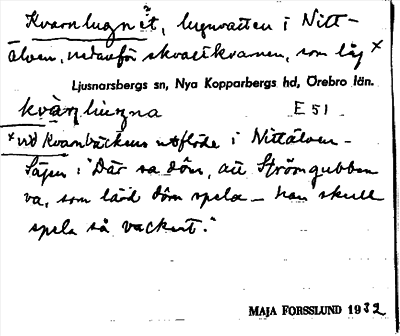 Kvarnlugnet, lugnvatten i Nitt-
älven, nedanför skvaltkvarnen, som låg x
Ljusnarsbergs sn, Nya Kopparbergs hd, Örebro län.
E 51
x vid Kvarnbäckens utflöde i Nittälven –
Sägen: "Där sa döm, att Strömgubben
va, som lärd döm spela – han skulle
spela så vackert."
MAJA FORSSLUND 1932